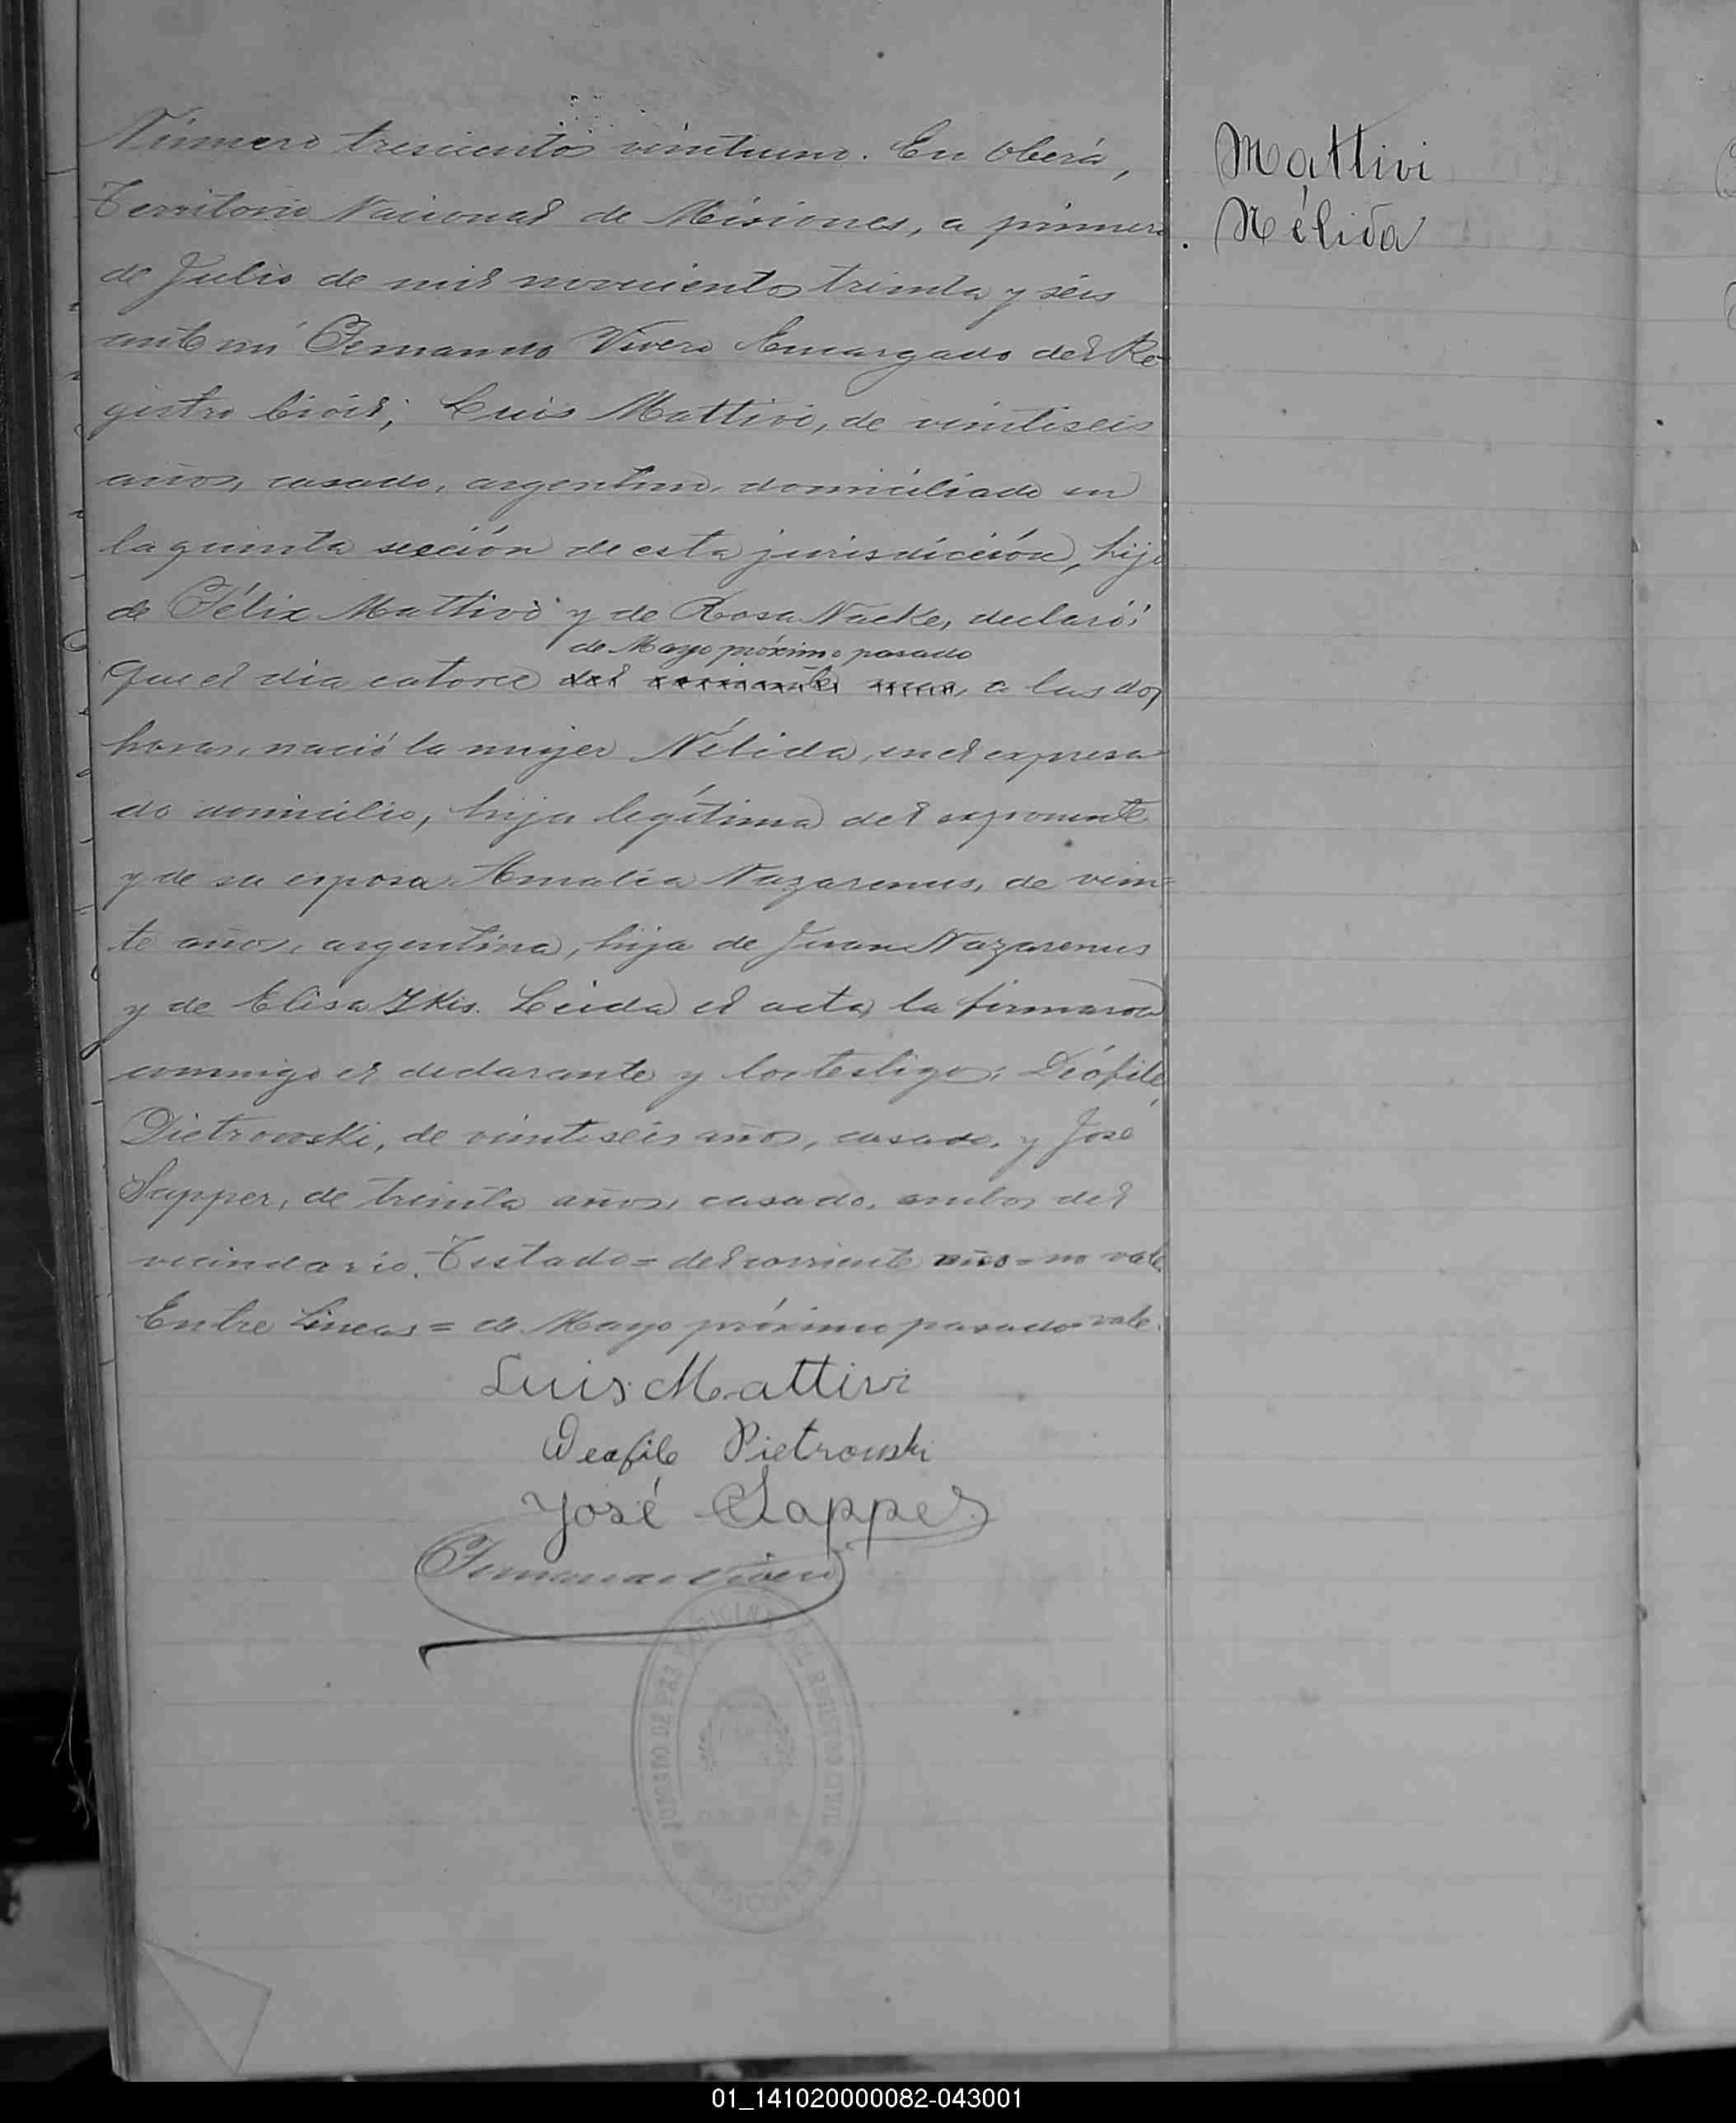 Número trescientos vintiuno. En Oberá,
Territorio Nacional de Misiones, a primero
de Julio de mil novecientos treinta y seis
ante mí Fernando Vivero Encargado del Re-
gistro Civil; Luis Mattivi, de vintiseis
años, casado, argentino, domiciliado en
la quinta sección de esta jurisdicción, hijo
de Félix Mattivi y de Rosa Nacke, declaró:
de Mayo próximo pasado
Que el dia catorce del corriente mes, a las dos
horas, nació la mujer Nélida, en el expresa-
do domicilio, hija legítima del exponente
y de su esposa Amalia Nazarenus, de vein-
te años, argentina, hija de Juan Nazarenus
y de Elisa Ikis. Leida el acta, la firmaron
conmigo el declarante y los testigos: Deófile
Pietrowski, de vintiseis años, casado, y José
Sapper, de treinta años, casado, ambos del
vecindario. Testado= del corriente mes= no vale.
Entre Lineas= de Mayo próximo pasado= vale.
Luis Mattivi
Deofile Pietrowski
José Sapper
Fernando Vivero
JUZGADO DE PAZ Y OFICINA DEL REGISTRO CIVIL
Mattivi
Nélida
01_141020000082-043001